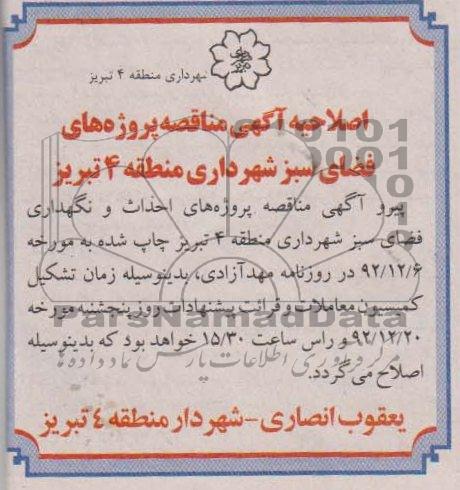 شهرداری منطقه ۴ تبریز
اصلاحیه آگهی مناقصه پروژه‌های
فضای سبز شهرداری منطقه ۴ تبریز
پیرو آگهی مناقصه پروژه‌های احداث و نگهداری
فضای سبز شهرداری منطقه ۴ تبریز چاپ شده به مورخه
۹۲/۱۲/۶ در روزنامه مهدآزادی، بدینوسیله زمان تشکیل
کمیسیون معاملات و قرائت پیشنهادات روز پنجشنبه مورخه
ParsNamadData
۹۲/۱۲/۲۰ و راس ساعت ۱۵/۳۰ خواهد بود که بدینوسیله
مرکز فرآوری اطلاعات پارس نماد داده ها
اصلاح می گردد.
یعقوب انصاری - شهردار منطقه ٤ تبریز